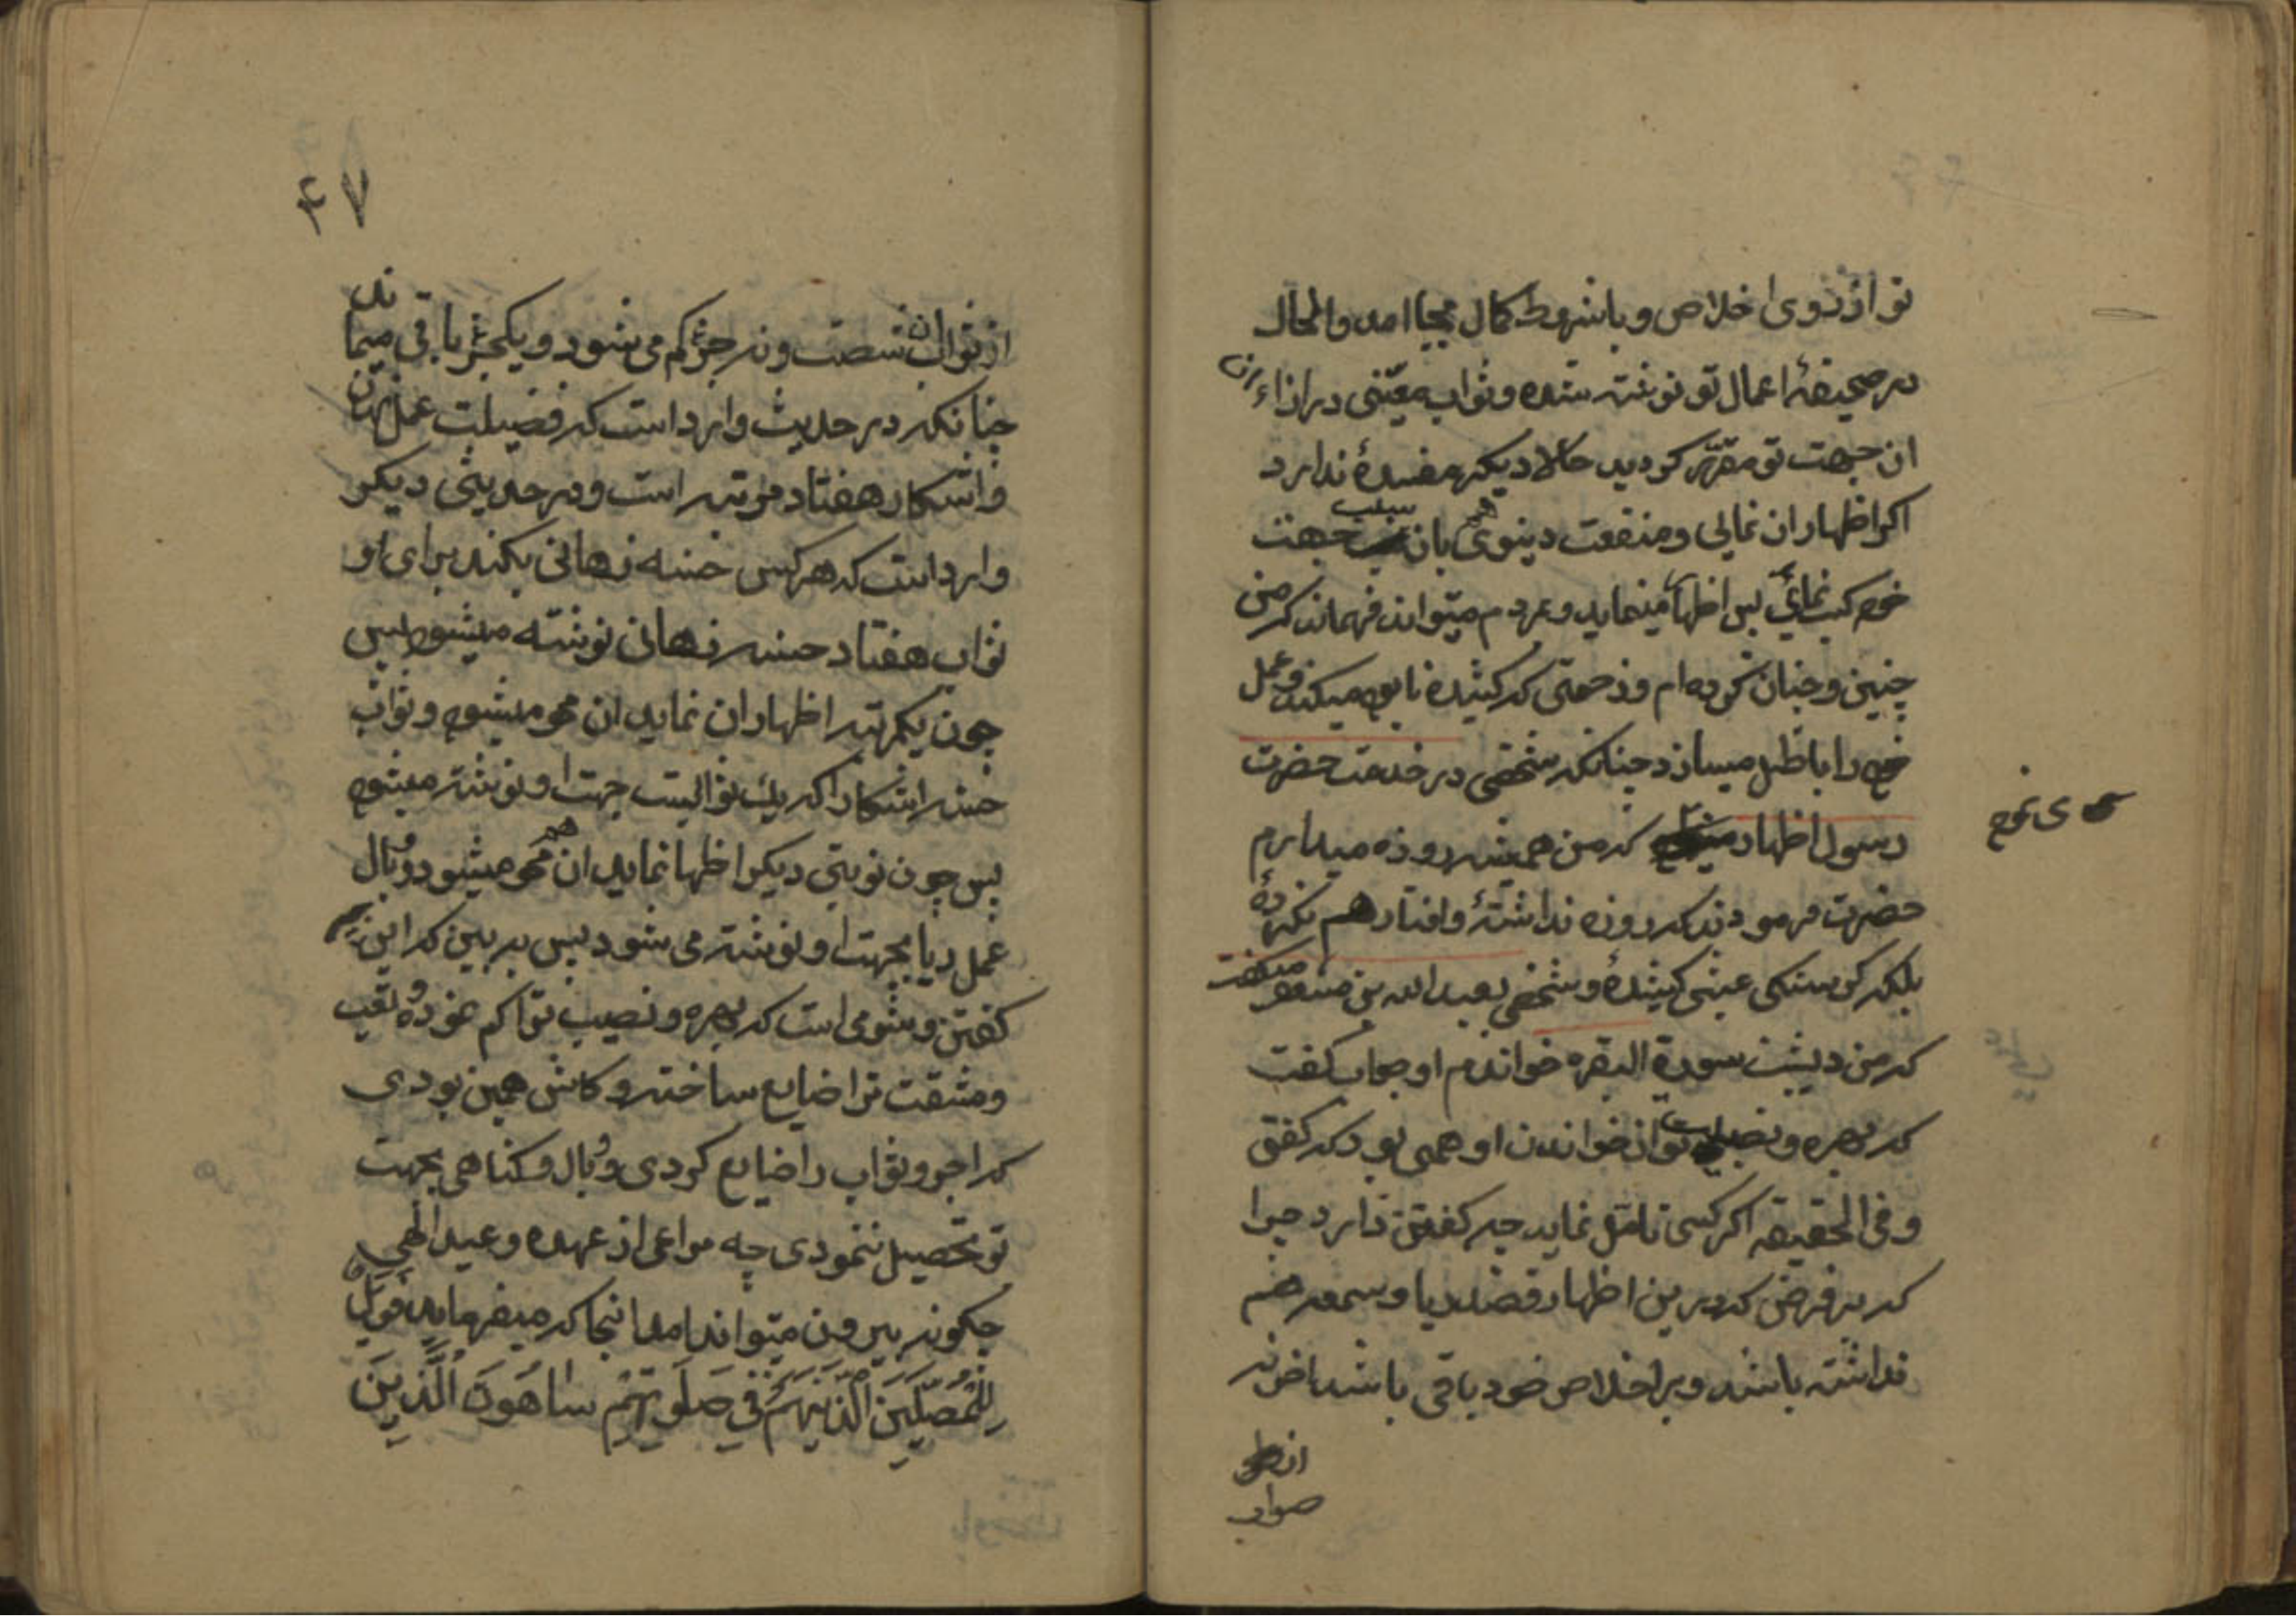 تو از روی اخلاص و باشروط کمال بجا امد والحال
در صحیفهٔ اعمال تو نوشته شده و ثواب معینی در ازاء
ان جهت تو مقرر کردید حالا دیکر مفسدهٔ ندارد
اکر اظهار ان نمائی و منفعت دینوی هم بان سبب جهت
خود کسب نمائی پس اظهار مینماید و بمردم میتواند فهماند که من
چنین و چنان کرده ام و زحمتی که کشیده نابود میکند و عمل
خود را باطل میسازد چنانکه شخصی در خدمت حضرت
رسول اظهار که من همیشه روزه میدارم
می نمود
حضرت فرمودند که روزه نداشتهٔ و افطار هم نکردهٔ
بلکه کرسنکی عبثی کشیدهٔ و شخصی بعبدالله بن مسعود میکفت
که من دیشب سورة البقره خواندم او جواب کفت
که بهره و نصیب تو از خواندن او همی بود که کفتی
و فی الحقیقه اکر کسی تامل نماید چه کفتن دارد چرا
که بر فرض که درین اظهار قصد ریا و سمعه هم
نداشته باشد و بر اخلاص خود باقی باشد اخر نه
از
صواب
۴۷
از ثواب ان شصت و نه جزء کم می شود و یکجزء باقی میماند
چنانکه در حدیث وارد است که فضیلت عمل نهان
واشکار هفتاد مرتبه است و در حدیثی دیکر
وارد است که هر کس حسنه نهانی بکند برای او
ثواب هفتاد حسنه نهانی نوشته میشود پس
چون یکمرتبه اظهار ان نماید ان محو میشود و ثواب
حسنه اشکارا که یك ثوابست جهت او نوشته میشود
پس چون نوبتی دیکر اظها نماید ان هم محو میشود و وبال
عمل ریا بجهت او نوشته می شود پس به بین که این
کفتن و شومی است که بهره و نصیب تو را کم نموده و تعب
و مشقت ترا ضایع ساخته و کاش همین بودی
که اجر و ثواب را ضایع کردی و وبال و کناهی بجهت
تو تحصیل ننمودی چه مراعی از عهده وعید الهی
چکونه بیرون میتواند امد انجا که میفرماید فَوَیْلٌ
لِلْمُصَلِّینَ الَّذِینَ هُمْ فِی صَلَوتِهِمْ سَاهُونَ الَّذِینَ